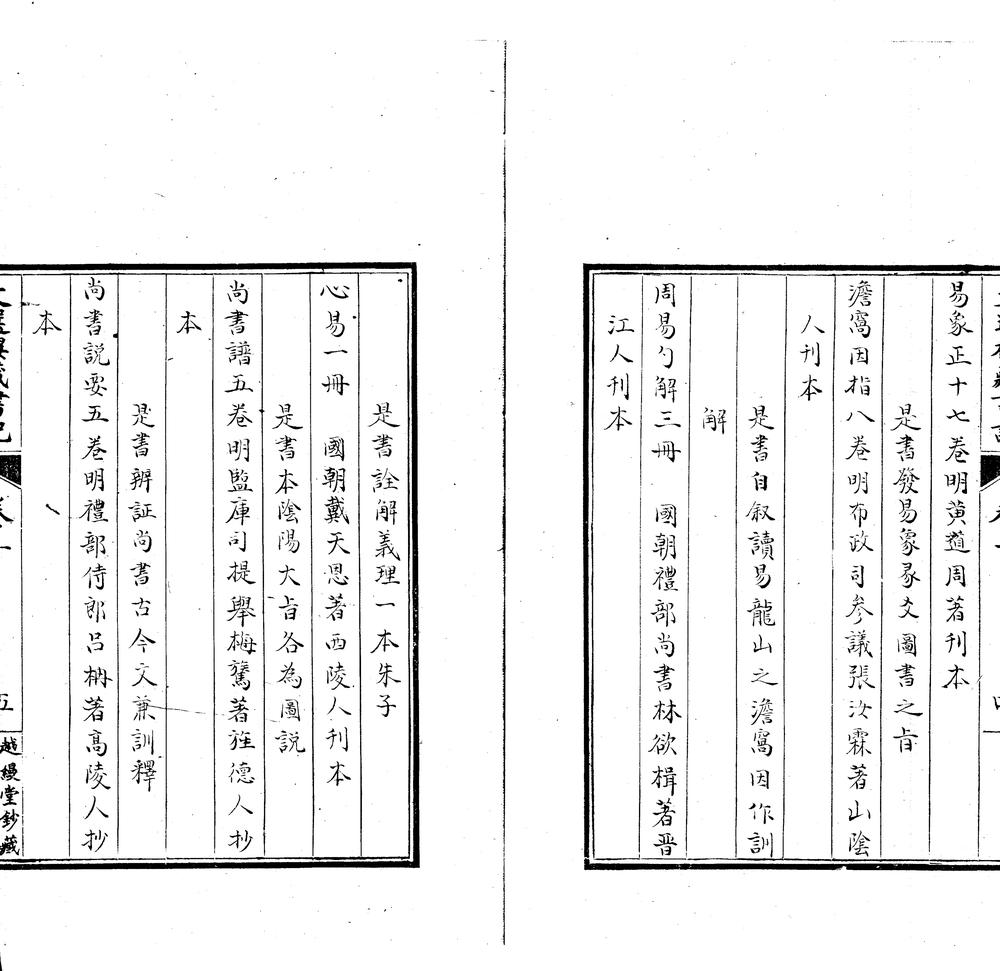 易象正十七卷明黄道周著刊本
是書發易象彖爻圖書之旨
澹窩因指八卷明布政司参議張汝霖著山陰
人刊本
是書自叙讀易龍山之澹窩因作訓
解
周易勺解三冊　國朝禮部尚書林欲楫著晋
江人刊本
是書詮解義理一本朱子
心易一冊　國朝戴天恩著西陵人刊本
是書本陰陽大旨各為圖説
尚書譜五卷明監庫司提舉梅鷟著旌德人抄
本
是書辨証尚書古今文兼訓釋
尚書説要五卷明禮部侍郎吕柟著髙陵人抄
本
五
越縵堂鈔藏